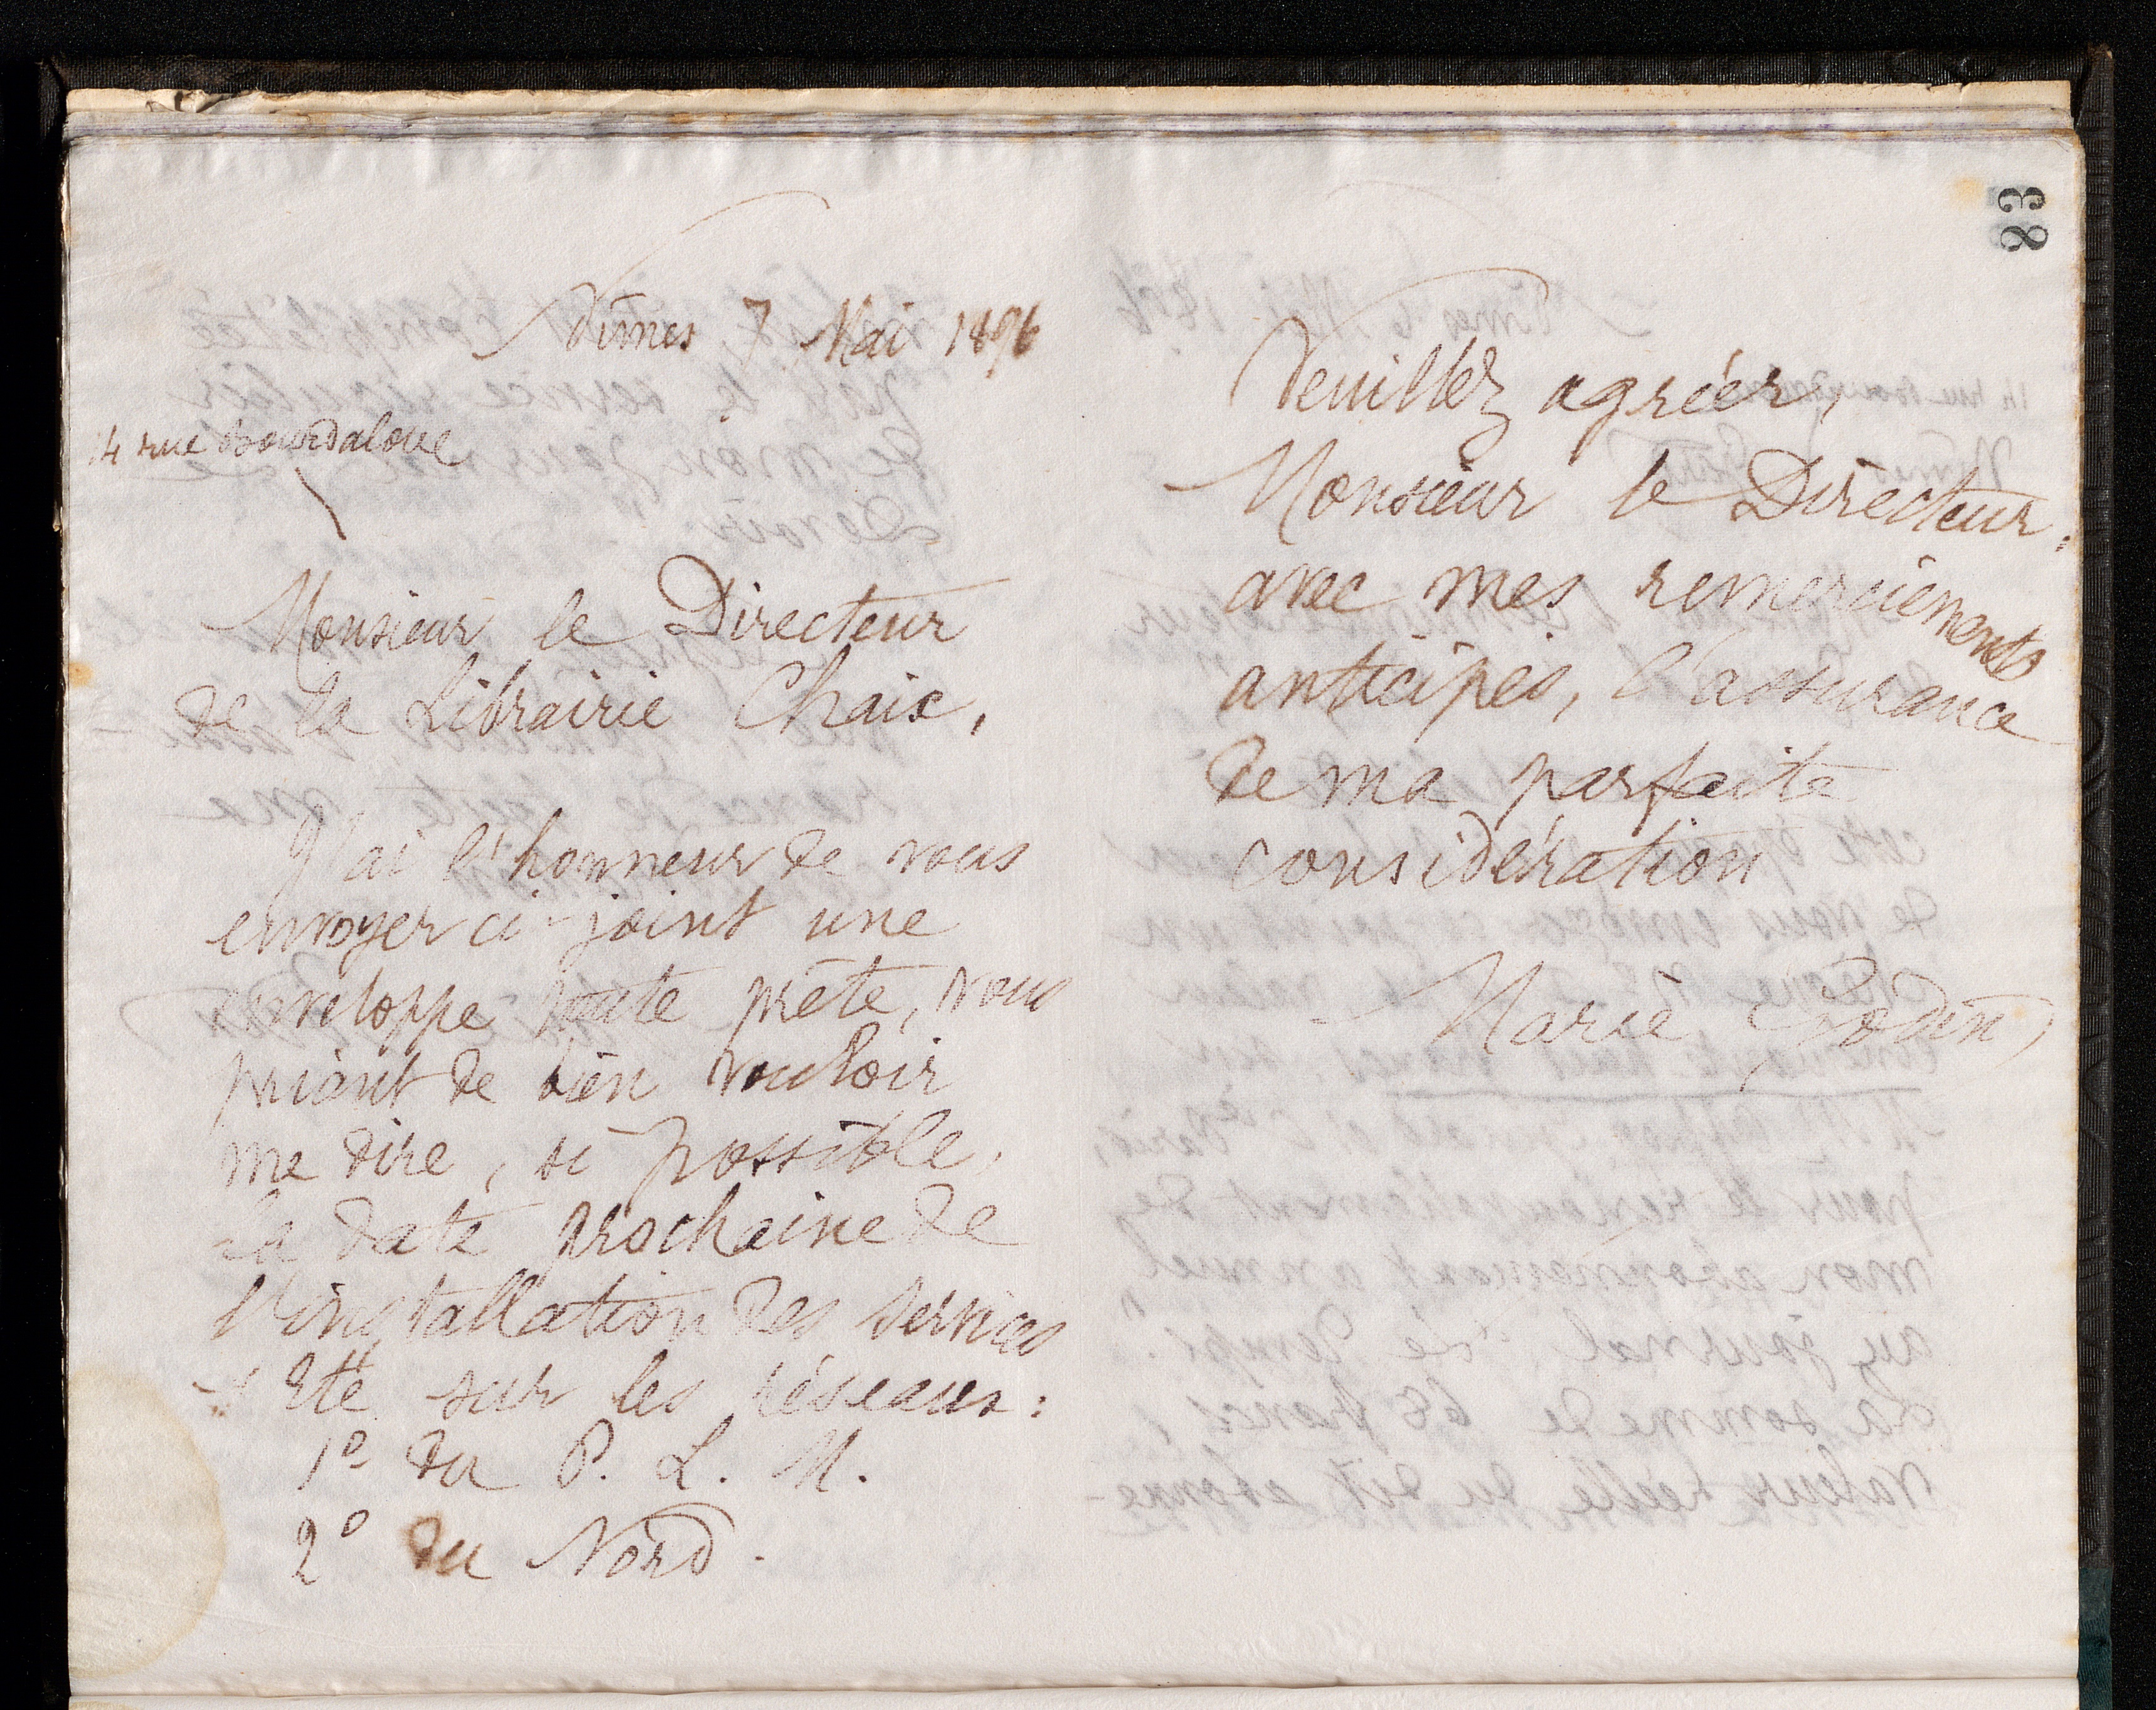 83
Nîmes 7 Mai 1896
14 rue Bourdaloue
Monsieur le Directeur
de la Librairie Chaix,
J'ai l'honneur de vous
envoyer ci-joint une
enveloppe toute prête, vous
priant de bien vouloir
me dire, si possible,
la date prochaine de
l'installation des services
d'Eté sur les réseaux :
1º du P. L. M.
2º du Nord.
Veuillez agréer,
Monsieur le Directeur,
avec mes remerciements
anticipés, l'assurance
de ma parfaite
considération
Marie Godin